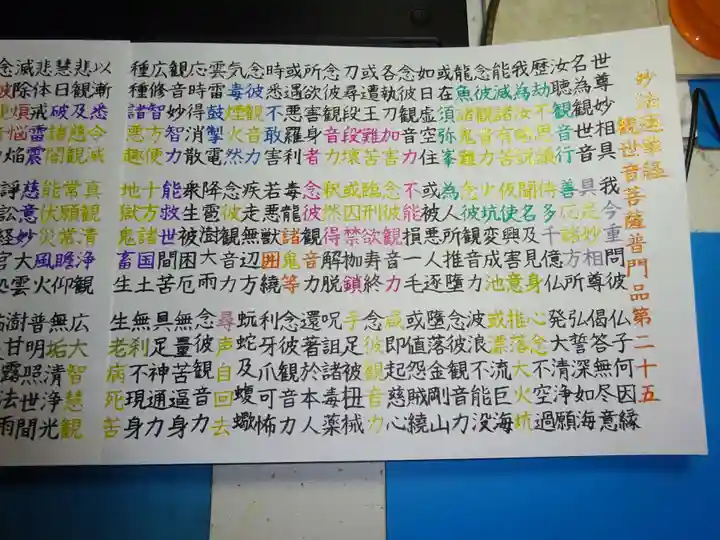 妙法蓮華経
観世音菩薩普門品第二十五
世尊妙相具 我今重問彼 仏子何因縁
名為観世音 具足妙相尊 偈答無尽意
汝聴観音行 善応諸方所 弘誓深如海
歴劫不思議 侍多千億仏 発大清浄願
我為汝略説 聞名及見身 心念不空過
能滅諸有苦 仮使興害意 推落大火坑
念彼観音力 火坑変成池 或漂流巨海
龍魚諸鬼難 念彼観音力 波浪不能没
或在須弥峯 為人所推堕 念彼観音力
如日虚空住 或被悪人逐 堕落金剛山
念彼観音力 不能損一毛 或値怨賊繞
各執刀加害 念彼観音力 咸即起慈心
或遭王難苦 臨刑欲寿終 念彼観音力
刀尋段段壊 或囚禁枷鎖 手足被杻械
念彼観音力 釈然得解脱 呪詛諸毒薬
所欲害身者 念彼観音力 還著於本人
或遇悪羅刹 毒龍諸鬼等 念彼観音力
時悉不敢害 若悪獣囲繞 利牙爪可怖
念彼観音力 疾走無辺方 蚖蛇及蝮蠍
気毒煙火然 念彼観音力 尋声自回去
雲雷鼓掣電 降雹澍大雨 念彼観音力
応時得消散 衆生被困厄 無量苦逼身
観音妙智力 能救世間苦 具足神通力
広修智方便 十方諸国土 無刹不現身
種種諸悪趣 地獄鬼畜生 生老病死苦
以漸悉令滅 真観清浄観 広大智慧観
悲観及慈観 常願常瞻仰 無垢清浄光
慧日破諸闇 能伏災風火 普明照世間
悲体戒雷震 慈意妙大雲 澍甘露法雨
滅除煩悩焔 諍訟経官処